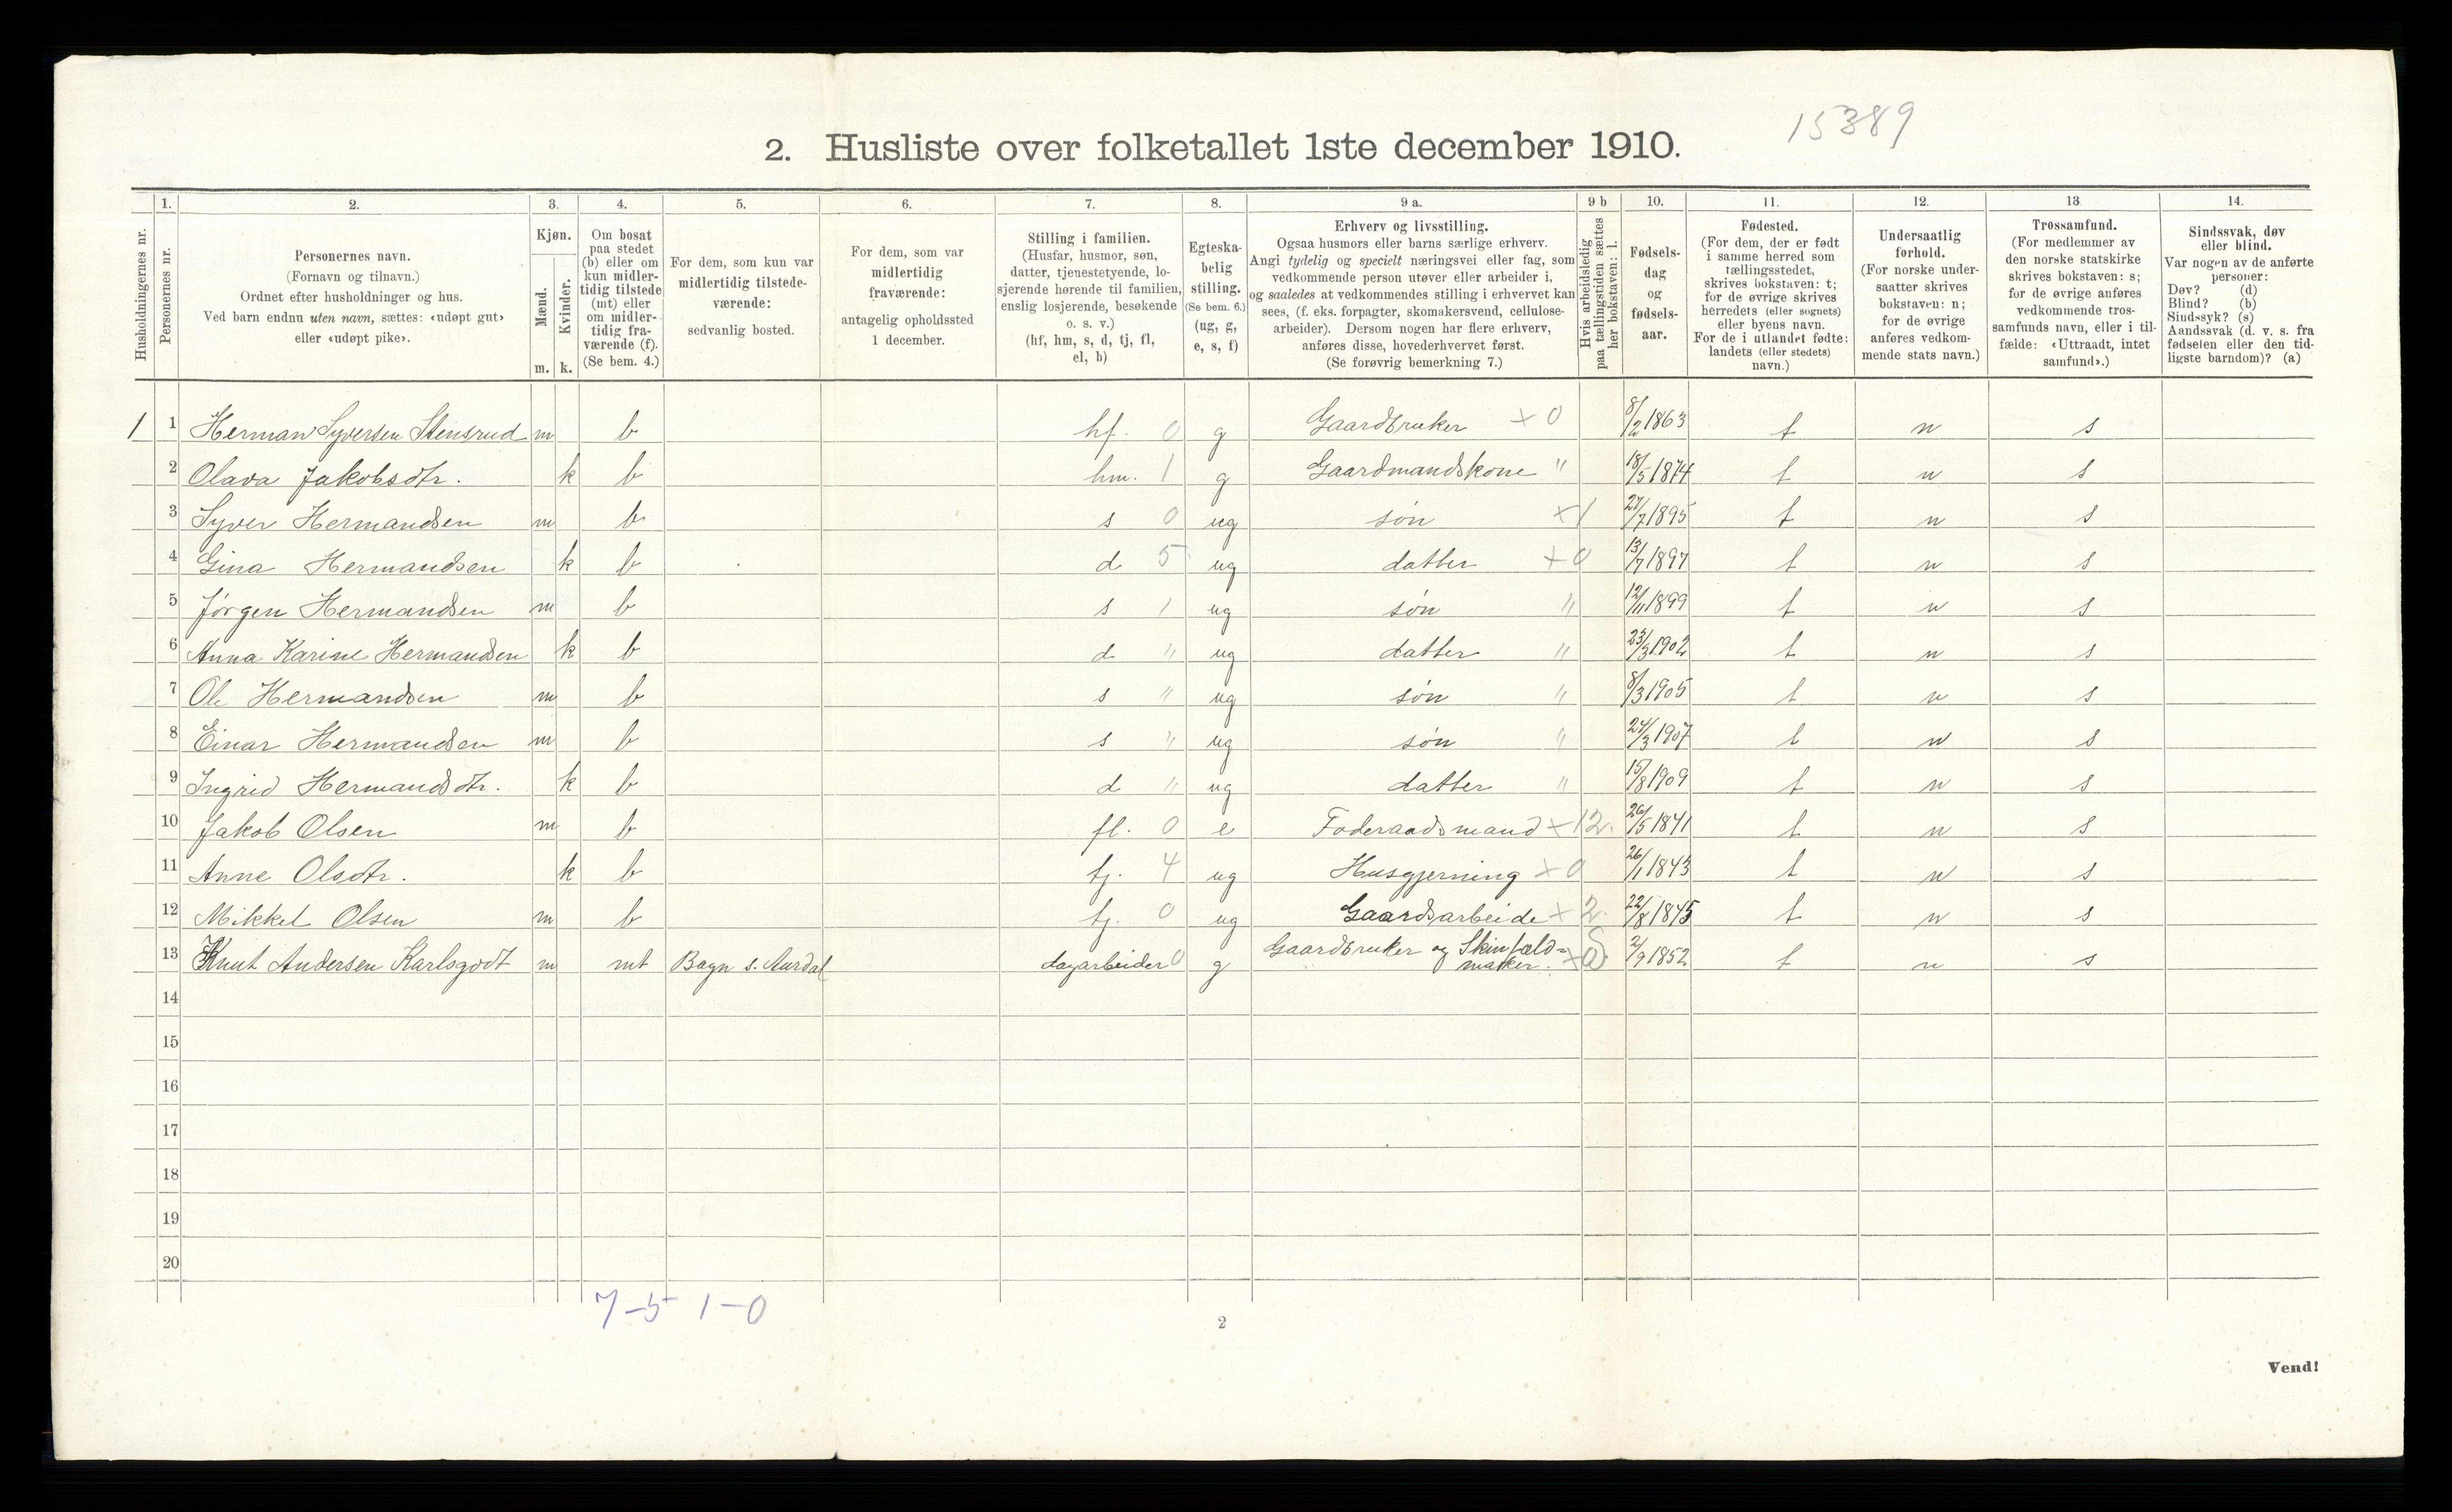 15389
2. Husliste over folketallet 1ste december 1910.
Husholdningernes nr.
1.
Personernes nr.
2.
Personernes navn.
(Fornavn og tilnavn.)
Ordnet efter husholdninger og hus.
Ved barn endnu uten navn, sættes: «udøpt gut»
eller «udøpt pike».
3.
Kjøn.
Mænd.
Kvinder.
m. k.
4.
Om bosat
paa stedet
(b) eller om
kun midler-
tidig tilstede
(mt) eller
om midler-
tidig fra-
værende (f).
(Se bem. 4.)
5.
For dem, som kun var
midlertidig tilstede-
værende:
sedvanlig bosted.
6.
For dem, som var
midlertidig
fraværende:
antagelig opholdssted
1 december.
7.
Stilling i familien.
(Husfar, husmor, søn,
datter, tjenestetyende, lo-
sjerende hørende til familien,
enslig losjerende, besøkende
o. s. v.)
(hf, hm, s, d, tj, fl,
el, b)
8.
Egteska-
belig
stilling.
(Se bem. 6.)
(ug, g,
e, s, f)
9 a.
Erhverv og livsstilling.
Ogsaa husmors eller barns særlige erhverv.
Angi tydelig og specielt næringsvei eller fag, som
vedkommende person utøver eller arbeider i,
og saaledes at vedkommendes stilling i erhvervet kan
sees, (f. eks. forpagter, skomakersvend, cellulose-
arbeider). Dersom nogen har flere erhverv,
anføres disse, hovederhvervet først.
(Se forøvrig bemerkning 7.)
9 b
Hvis arbeidsledig
paa tællingstiden sættes
her bokstaven: l.
10.
Fødsels-
dag
og
fødsels-
aar.
11.
Fødested.
(For dem, der er født
i samme herred som
tællingsstedet,
skrives bokstaven: t;
for de øvrige skrives
herredets (eller sognets)
eller byens navn.
For de i utlandet fødte:
landets (eller stedets)
navn.)
12.
Undersaatlig
forhold.
(For norske under-
saatter skrives
bokstaven: n;
for de øvrige
anføres vedkom-
mende stats navn.)
13
Trossamfund.
(For medlemmer av
den norske statskirke
skrives bokstaven: s;
for de øvrige anføres
vedkommende tros-
samfunds navn, eller i til-
fælde: «Uttraadt, intet
samfund».)
14.
Sindssvak, døv
eller blind.
Var nogen av de anførte
personer:
Døv? (d)
Blind? (b)
Sindssyk? (s)
Aandssvak (d. v. s. fra
fødselen eller den tid-
ligste barndom)? (a)
1 1 Herman Syversen Stensrud m b hf. 0 g Gaardbruker × 0 8/2 1863 t n s
2 Olava Jakobsdtr. k b hm. 1 g Gaardmandskone " 18/5 1874 t n s
3 Syver Hermandsen m b s 0 ug søn × 1 27/7 1895 t n s
4 Gina Hermandsen k b d 5 ug datter × 0 13/7 1897 t n s
5 Jørgen Hermandsen m b s 1 ug søn " 12/11 1899 t n s
6 Anna Karine Hermandsen k b d " ug datter " 23/3 1902 t n s
7 Ole Hermandsen m b s " ug søn " 8/3 1905 t n s
8 Einar Hermandsen m b s " ug søn " 24/3 1907 t n s
9 Ingrid Hermandsdtr. k b d " ug datter " 15/8 1909 t n s
10 Jakob Olsen m b fl. 0 e Foderaadsmand × 12. 26/5 1841 t n s
11 Anne Olsdtr. k b tj. 4 ug Husgjerning × 0 26/1 1843 t n s
12 Mikkel Olsen m b tj. 0 ug Gaardsarbeide × 2. 22/8 1845 t n s
13 Knut Andersen Karlsgodt m mt Bagn s. Aurdal dagarbeider 0 g Gaardbruker og Skinfæld=
maker. × 2/9 1852 t n s
14
15
16
17
18
19
20
7-5 1-0
2
Vend!